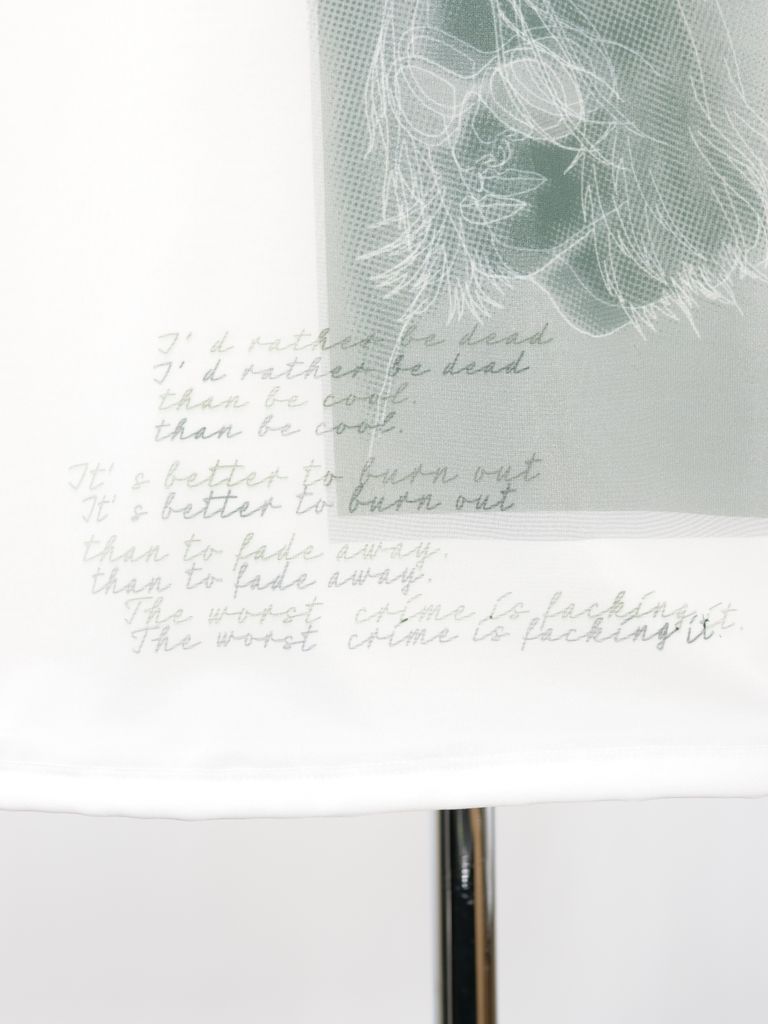 I' d rather be dead
I' d rather be dead
than be cool.
than be cool.
It' s better to burn out
It' s better to burn out
than to fade away.
than to fade away.
The worst crime is facking it.
The worst crime is facking it.